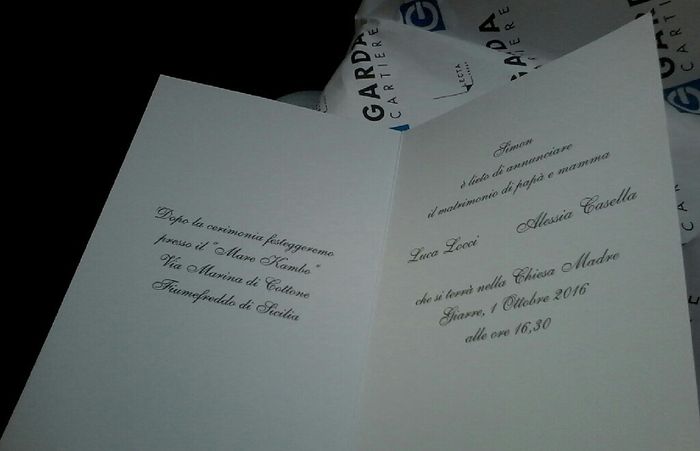 GARDA
CARTIERE
GARDA
CARTIERE
GARDA
CARTIERE
LECTA
Dopo la cerimonia festeggeremo
presso il "Mare Kambo"
Via Marina di Cottone
Fiumefreddo di Sicilia
Simon
è lieto di annunciare
il matrimonio di papà e mamma
Luca Locci Alessia Casella
che si terrà nella Chiesa Madre
Giarre, 1 Ottobre 2016
alle ore 16,30